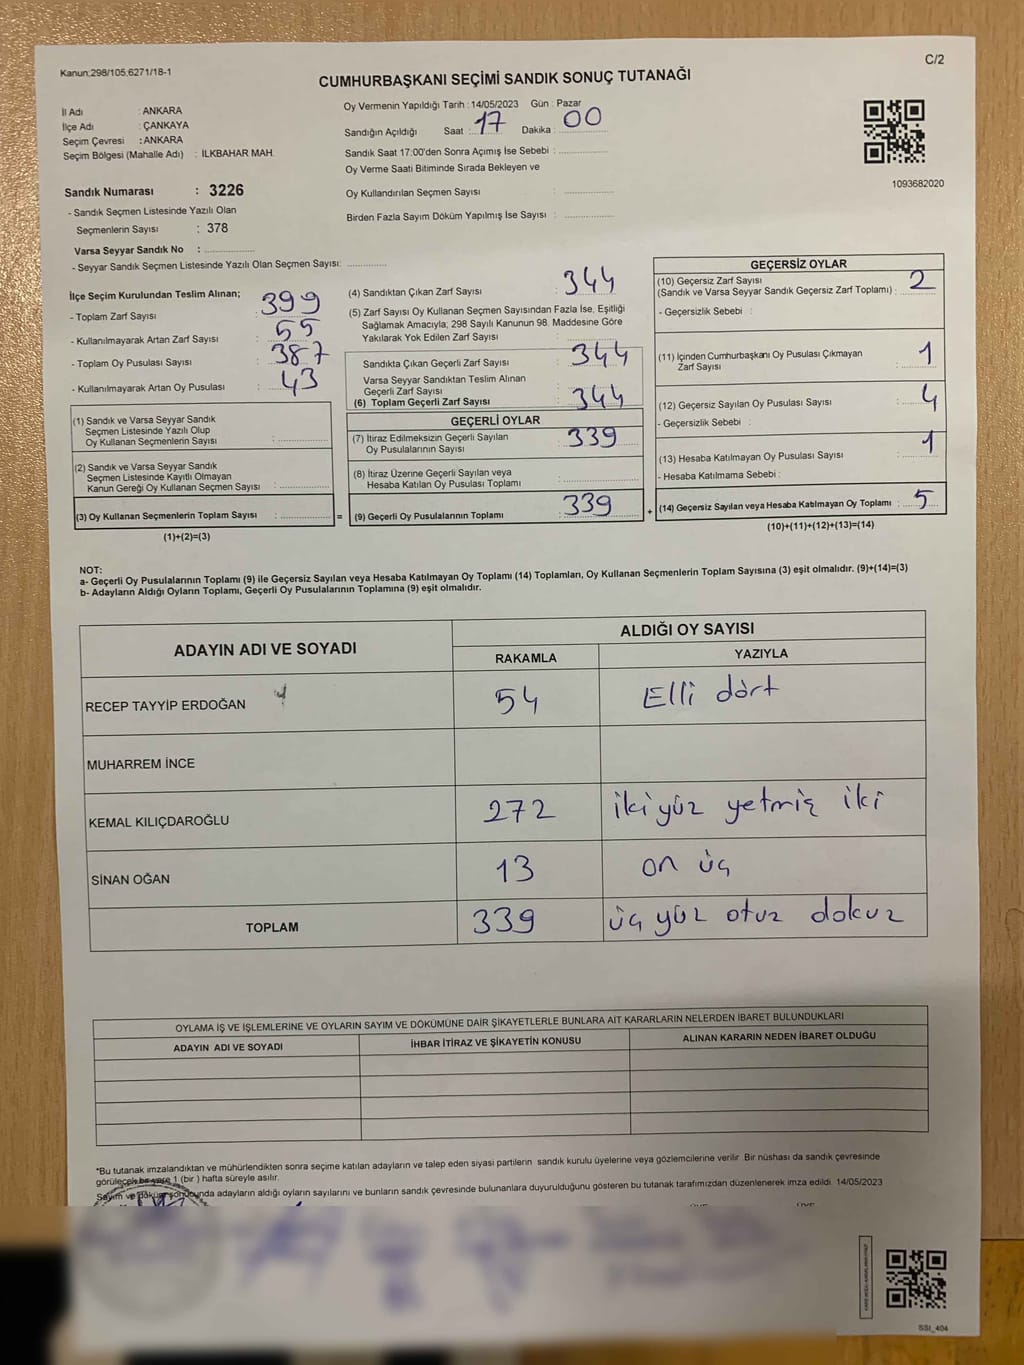 Kanun:298/105,6271/18-1
C/2
CUMHURBAŞKANI SEÇİMİ SANDIK SONUÇ TUTANAĞI
İl Adı : ANKARA
İlçe Adı : ÇANKAYA
Seçim Çevresi : ANKARA
Seçim Bölgesi (Mahalle Adı) : İLKBAHAR MAH.
Sandık Numarası : 3226
- Sandık Seçmen Listesinde Yazılı Olan
Seçmenlerin Sayısı : 378
Varsa Seyyar Sandık No :
- Seyyar Sandık Seçmen Listesinde Yazılı Olan Seçmen Sayısı:
Oy Vermenin Yapıldığı Tarih : 14/05/2023 Gün : Pazar
Sandığın Açıldığı Saat : 17 Dakika : 00
Sandık Saat 17:00'den Sonra Açımış İse Sebebi :
Oy Verme Saati Bitiminde Sırada Bekleyen ve
Oy Kullandırılan Seçmen Sayısı :
Birden Fazla Sayım Döküm Yapılmış İse Sayısı :
1093682020
İlçe Seçim Kurulundan Teslim Alınan;
- Toplam Zarf Sayısı : 399
- Kullanılmayarak Artan Zarf Sayısı : 55
- Toplam Oy Pusulası Sayısı : 387
- Kullanılmayarak Artan Oy Pusulası : 43
(1) Sandık ve Varsa Seyyar Sandık
Seçmen Listesinde Yazılı Olup
Oy Kullanan Seçmenlerin Sayısı :
(2) Sandık ve Varsa Seyyar Sandık
Seçmen Listesinde Kayıtlı Olmayan
Kanun Gereği Oy Kullanan Seçmen Sayısı :
(3) Oy Kullanan Seçmenlerin Toplam Sayısı : =
(1)+(2)=(3)
(4) Sandıktan Çıkan Zarf Sayısı : 344
(5) Zarf Sayısı Oy Kullanan Seçmen Sayısından Fazla İse, Eşitliği
Sağlamak Amacıyla; 298 Sayılı Kanunun 98. Maddesine Göre
Yakılarak Yok Edilen Zarf Sayısı :
Sandıkta Çıkan Geçerli Zarf Sayısı : 344
Varsa Seyyar Sandıktan Teslim Alınan
Geçerli Zarf Sayısı :
(6) Toplam Geçerli Zarf Sayısı : 344
GEÇERLİ OYLAR
(7) İtiraz Edilmeksizin Geçerli Sayılan
Oy Pusulalarının Sayısı : 339
(8) İtiraz Üzerine Geçerli Sayılan veya
Hesaba Katılan Oy Pusulası Toplamı :
(9) Geçerli Oy Pusulalarının Toplamı : 339 +
GEÇERSİZ OYLAR
(10) Geçersiz Zarf Sayısı
(Sandık ve Varsa Seyyar Sandık Geçersiz Zarf Toplamı) : 2
- Geçersizlik Sebebi :
(11) İçinden Cumhurbaşkanı Oy Pusulası Çıkmayan
Zarf Sayısı : 1
(12) Geçersiz Sayılan Oy Pusulası Sayısı : 4
- Geçersizlik Sebebi :
(13) Hesaba Katılmayan Oy Pusulası Sayısı : 1
- Hesaba Katılmama Sebebi :
(14) Geçersiz Sayılan veya Hesaba Katılmayan Oy Toplamı : 5
(10)+(11)+(12)+(13)=(14)
NOT:
a- Geçerli Oy Pusulalarının Toplamı (9) ile Geçersiz Sayılan veya Hesaba Katılmayan Oy Toplamı (14) Toplamları, Oy Kullanan Seçmenlerin Toplam Sayısına (3) eşit olmalıdır. (9)+(14)=(3)
b- Adayların Aldığı Oyların Toplamı, Geçerli Oy Pusulalarının Toplamına (9) eşit olmalıdır.
ADAYIN ADI VE SOYADI
ALDIĞI OY SAYISI
RAKAMLA YAZIYLA
RECEP TAYYİP ERDOĞAN 54 Elli dört
MUHARREM İNCE
KEMAL KILIÇDAROĞLU 272 iki yüz yetmiş iki
SİNAN OĞAN 13 on üç
TOPLAM 339 üç yüz otuz dokuz
OYLAMA İŞ VE İŞLEMLERİNE VE OYLARIN SAYIM VE DÖKÜMÜNE DAİR ŞİKAYETLERLE BUNLARA AİT KARARLARIN NELERDEN İBARET BULUNDUKLARI
ADAYIN ADI VE SOYADI İHBAR İTİRAZ VE ŞİKAYETİN KONUSU ALINAN KARARIN NEDEN İBARET OLDUĞU
*Bu tutanak imzalandıktan ve mühürlendikten sonra seçime katılan adayların ve talep eden siyasi partilerin sandık kurulu üyelerine veya gözlemcilerine verilir. Bir nüshası da sandık çevresinde
görülecek bir yere 1 (bir ) hafta süreyle asılır.
Sayım ve döküm sonucunda adayların aldığı oyların sayılarını ve bunların sandık çevresinde bulunanlara duyurulduğunu gösteren bu tutanak tarafımızdan düzenlenerek imza edildi. 14/05/2023
SSI_404